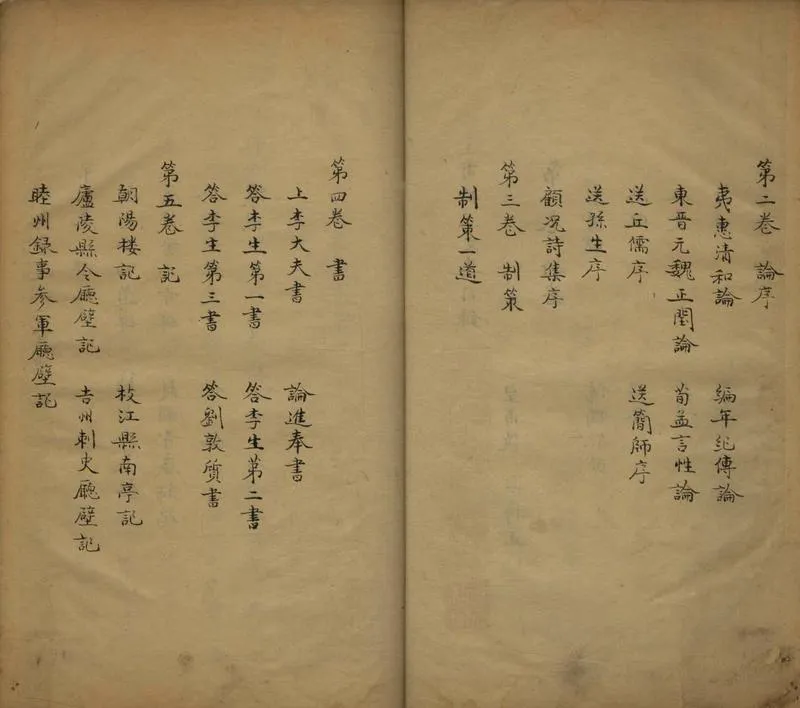 第二卷 論序
夷惠清和論 編年紀傳論
東晉元魏正閏論 荀孟言性論
送丘儒序 送簡師序
送孫生序
顧况詩集序
第三卷 制策
制策一道
第四卷 書
上李大夫書 論進奉書
答李生第一書 答李生第二書
答李生第三書 答劉敦質書
第五卷 記
朝陽楼記 枝江縣南亭記
廬陵縣令廳壁記 吉州刺史廳壁記
睦州録事參軍廳壁記